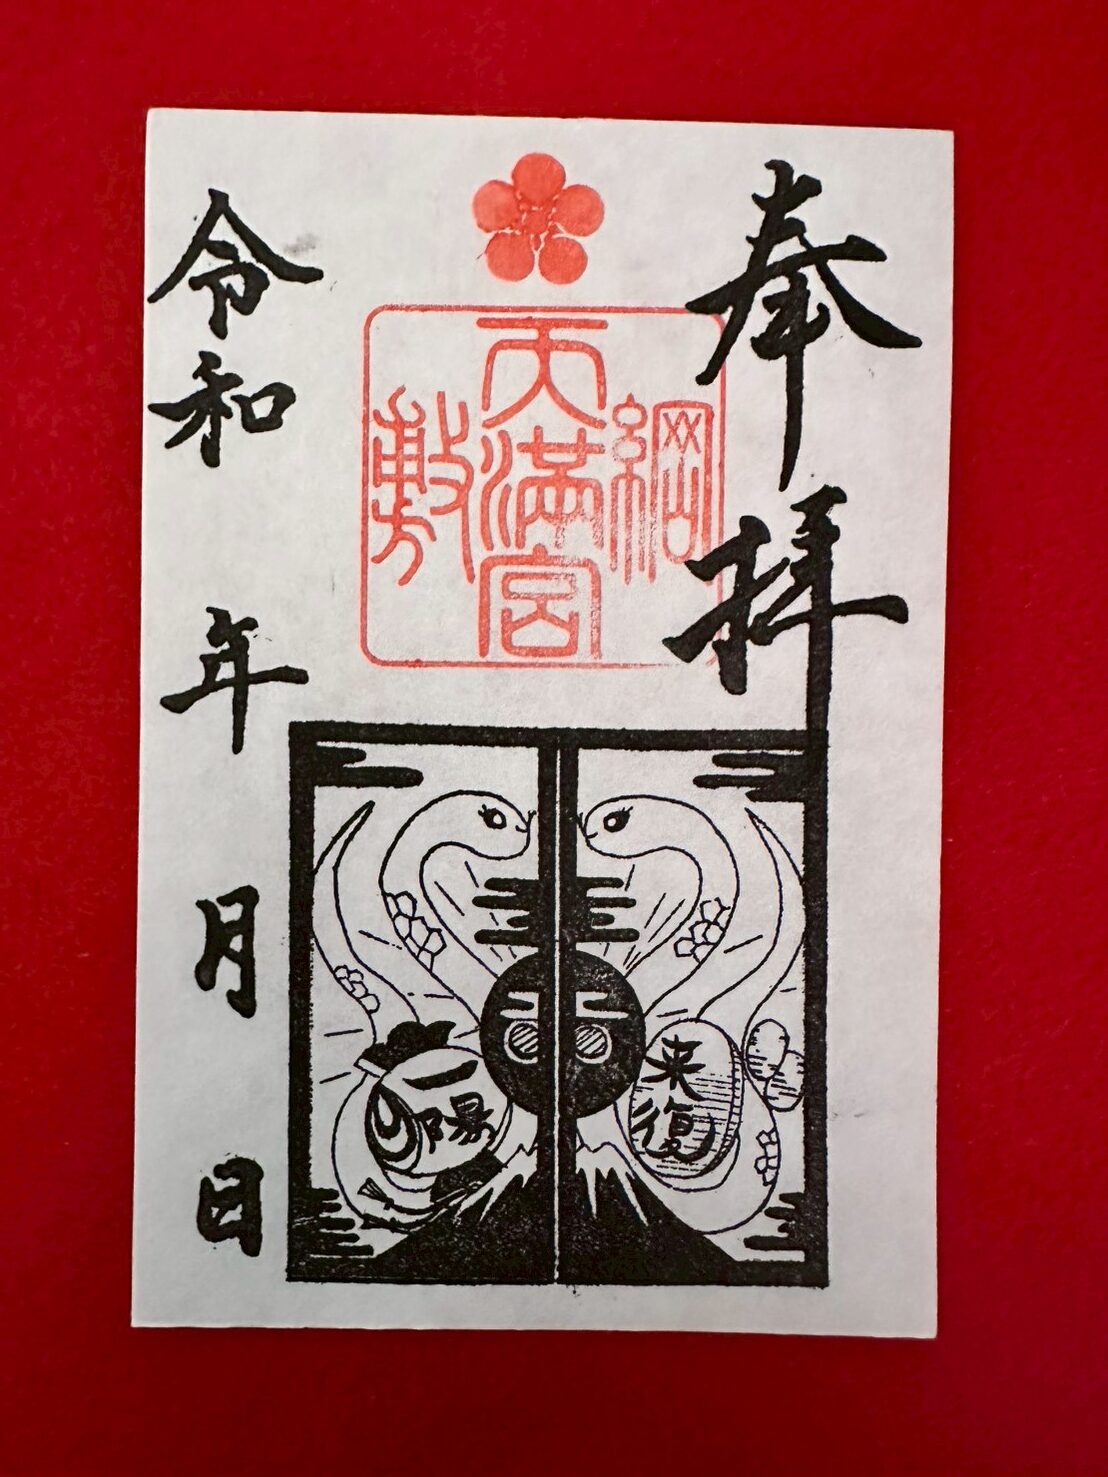 奉拝
綱
天満宮
敷
一陽
来復
令和 年 月 日